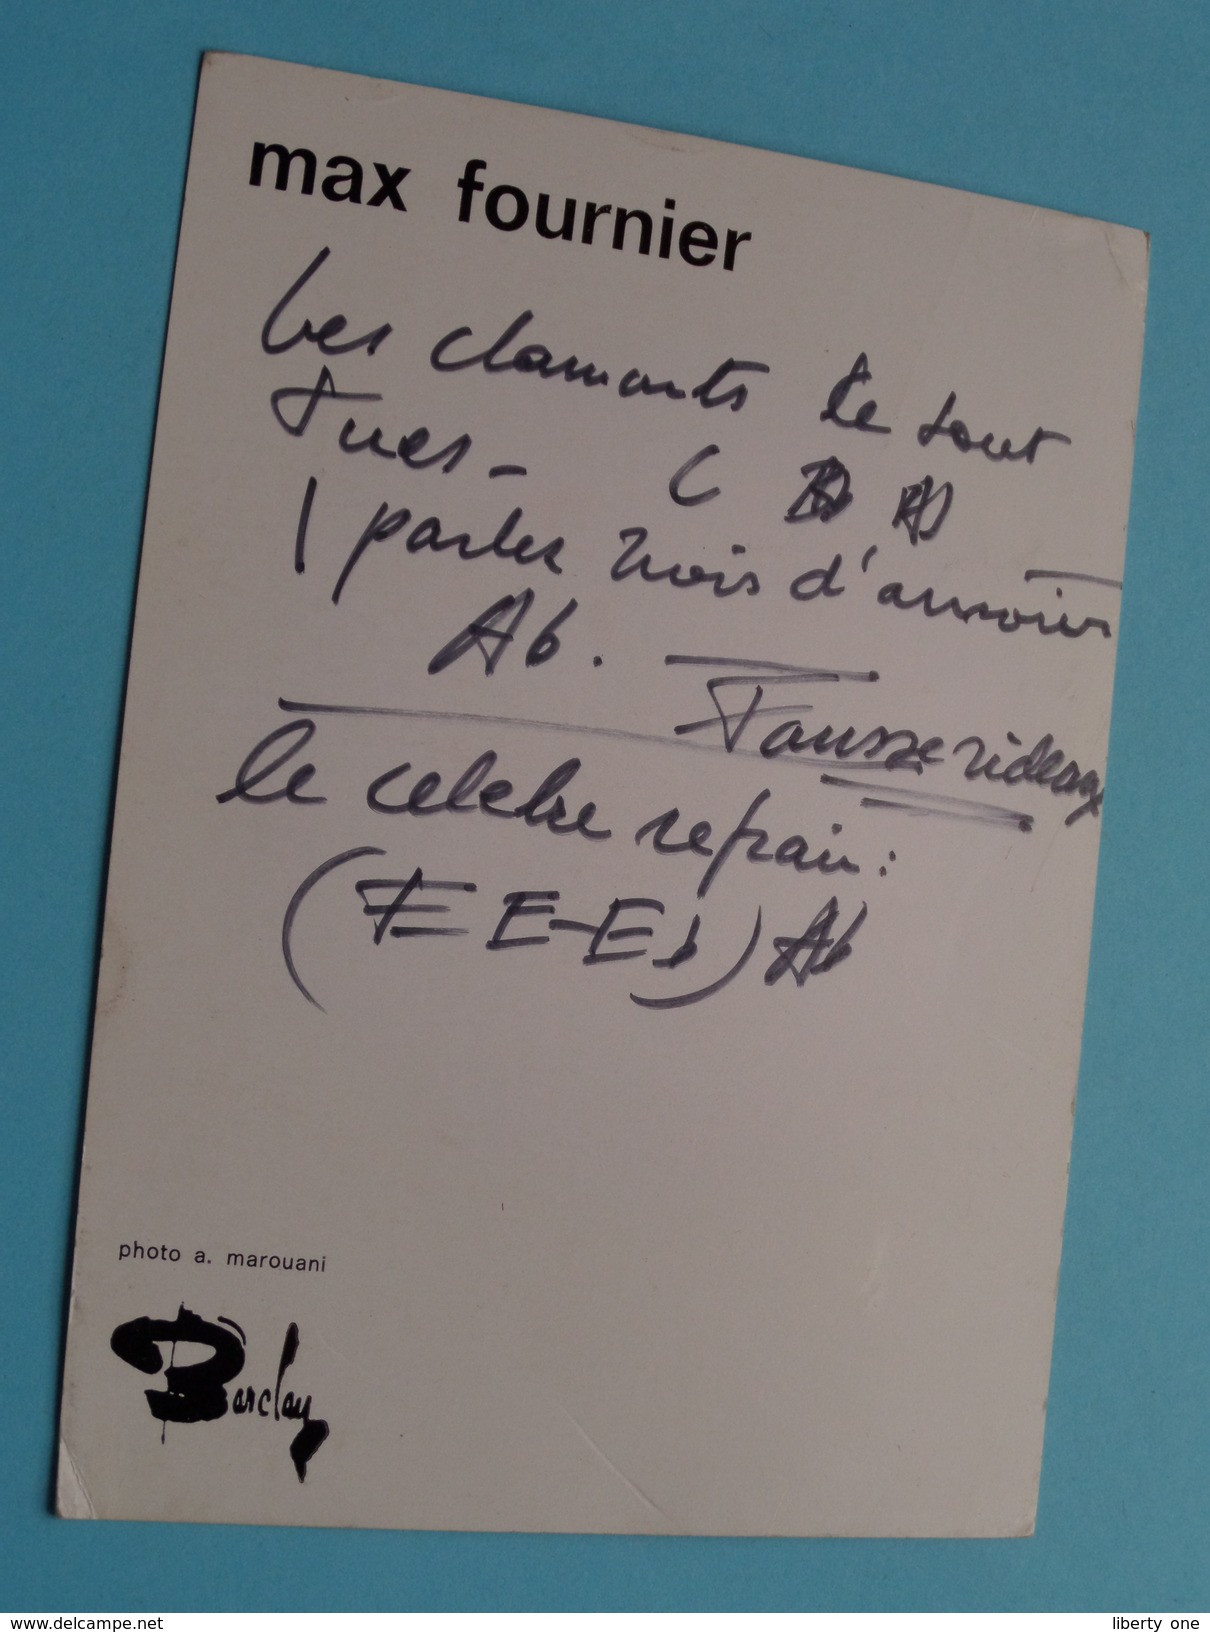 max fournier
Les clamants de tout
tues - C
1 parler mois d'amour
Ab. Fausse rideaux
le celebre refrain:
(E E-Eb) Ab
photo a. marouani
Barclay
www.delcampe.net
liberty_one